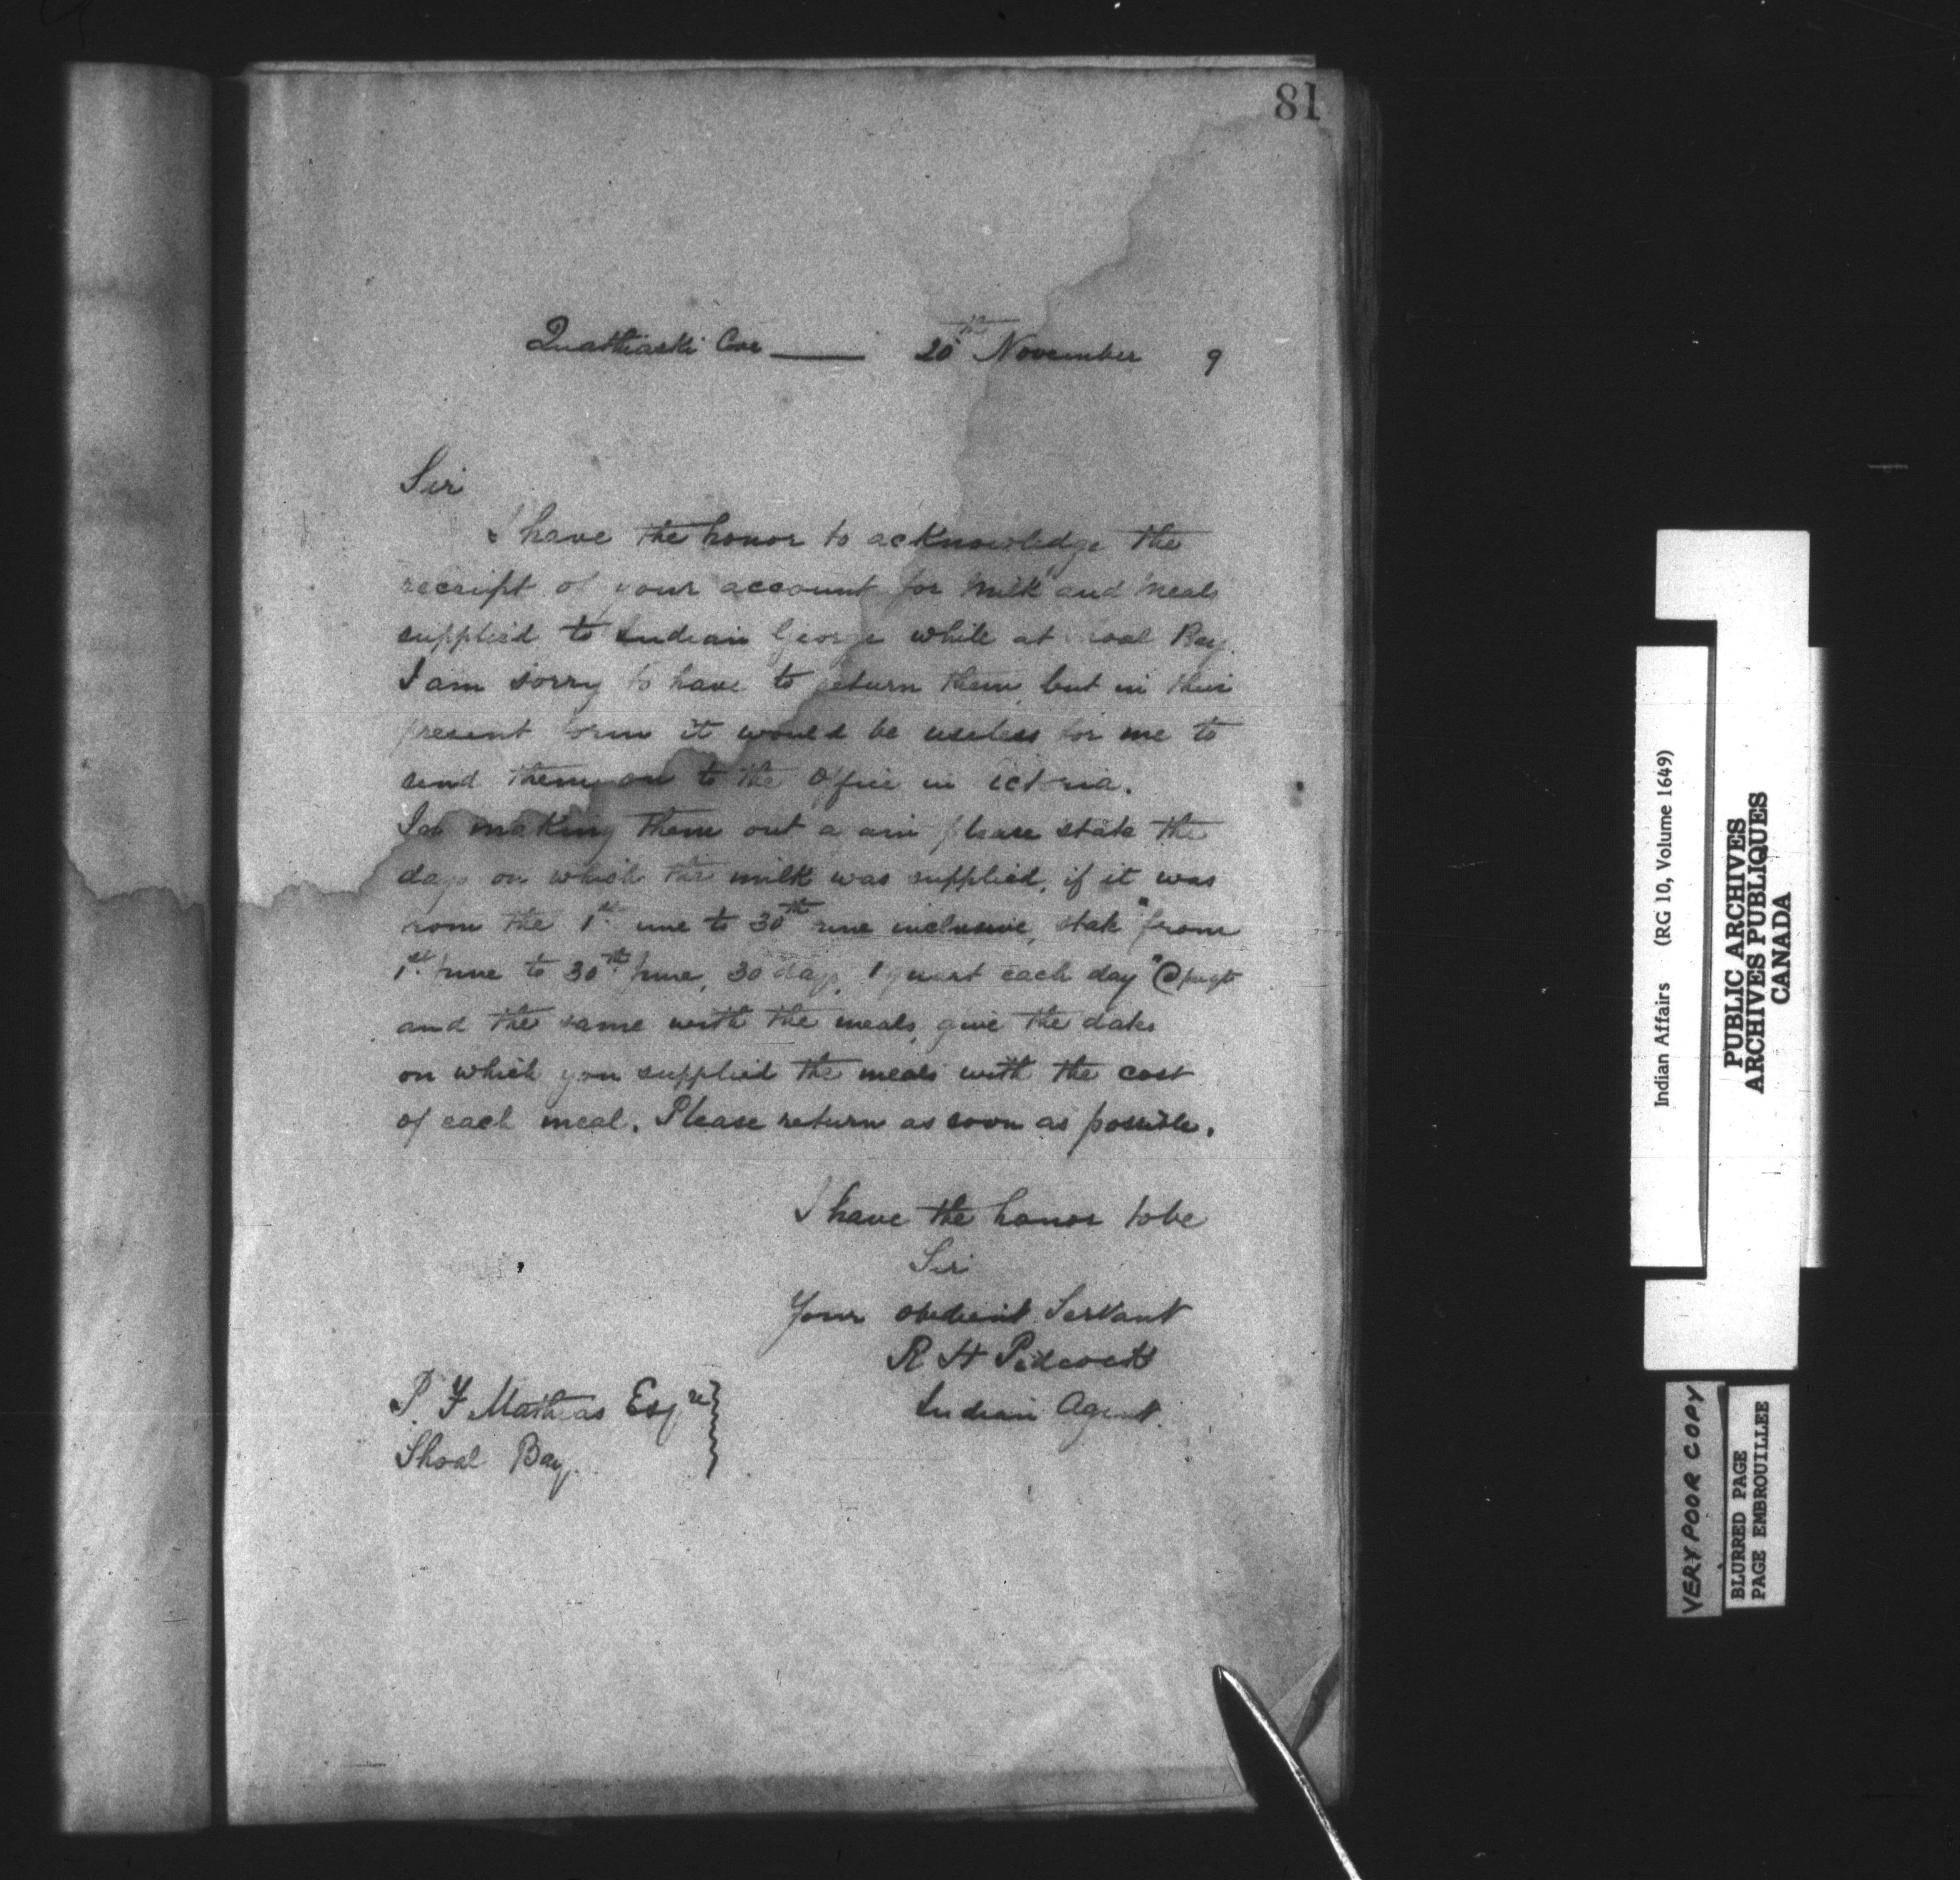 81
Quathiaski Cove — 20th November 9
Sir
I have the honor to acknowledge the
receipt of your account for "milk" and meals
supplied to Indian George while at Shoal Bay.
I am sorry to have to return them, but in their
present form it would be useless for me to
send them on to the Office in ictoria.
In making them out again please state the
days on which the milk was supplied, if it was
from the 1st June to 30th June inclusive, state "from
1st June to 30th June, 30 days, 1 quart each day" @
and the same with the meals, give the dates
on which you supplied the meals with the cost
of each meal. Please return as soon as possible.
I have the honor to be
Sir
Your obedient Servant
R H Pidcock
Indian Agent.
P. F Mathias Esqre
Shoal Bay.
Indian Affairs (RG 10, Volume 1649)
PUBLIC ARCHIVES
ARCHIVES PUBLIQUES
CANADA
VERY POOR COPY
BLURRED PAGE
PAGE EMBROUILLEE